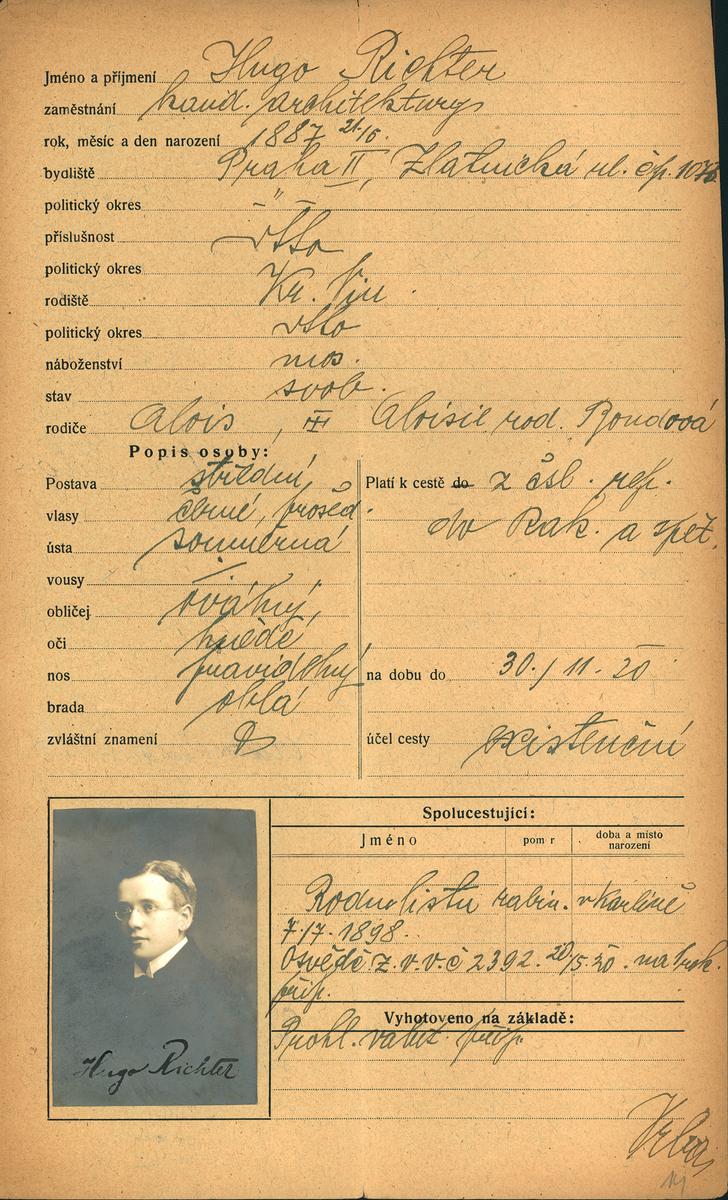 Jméno a příjmení Hugo Richter
zaměstnání kand. architektury
rok, měsíc a den narození 1887 21/6.
bydliště Praha II, Zlatnická ul. čp.
politický okres – " –
příslušnost
politický okres
rodiště Kr. Vin.
politický okres
náboženství mos.
stav svob.
rodiče Alois, Aloisie rod. Bondová
Popis osoby:
Postava střední Platí k cestě do z čsl. rep.
vlasy černé, prošed. do Rak. a zpět.
ústa souměrná
vousy
obličej oválný,
oči hnědé,
nos pravidelný na dobu do 30./11.20
brada oblá
zvláštní znamení účel cesty existenční
Spolucestující:
Jméno pom r doba a místo
narození
Rodn. listu rabin. v Karlíně
7./7. 1898.
Osvědč. z. v. v. č 2392. 20/5.20.
přísl.
Vyhotoveno na základě:
Prohl.
Hugo Richter